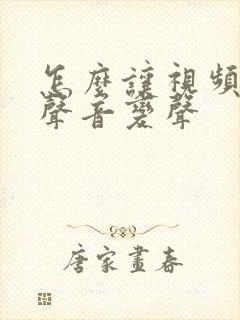 怎麼讓視頻
聲音變聲
唐家畫春